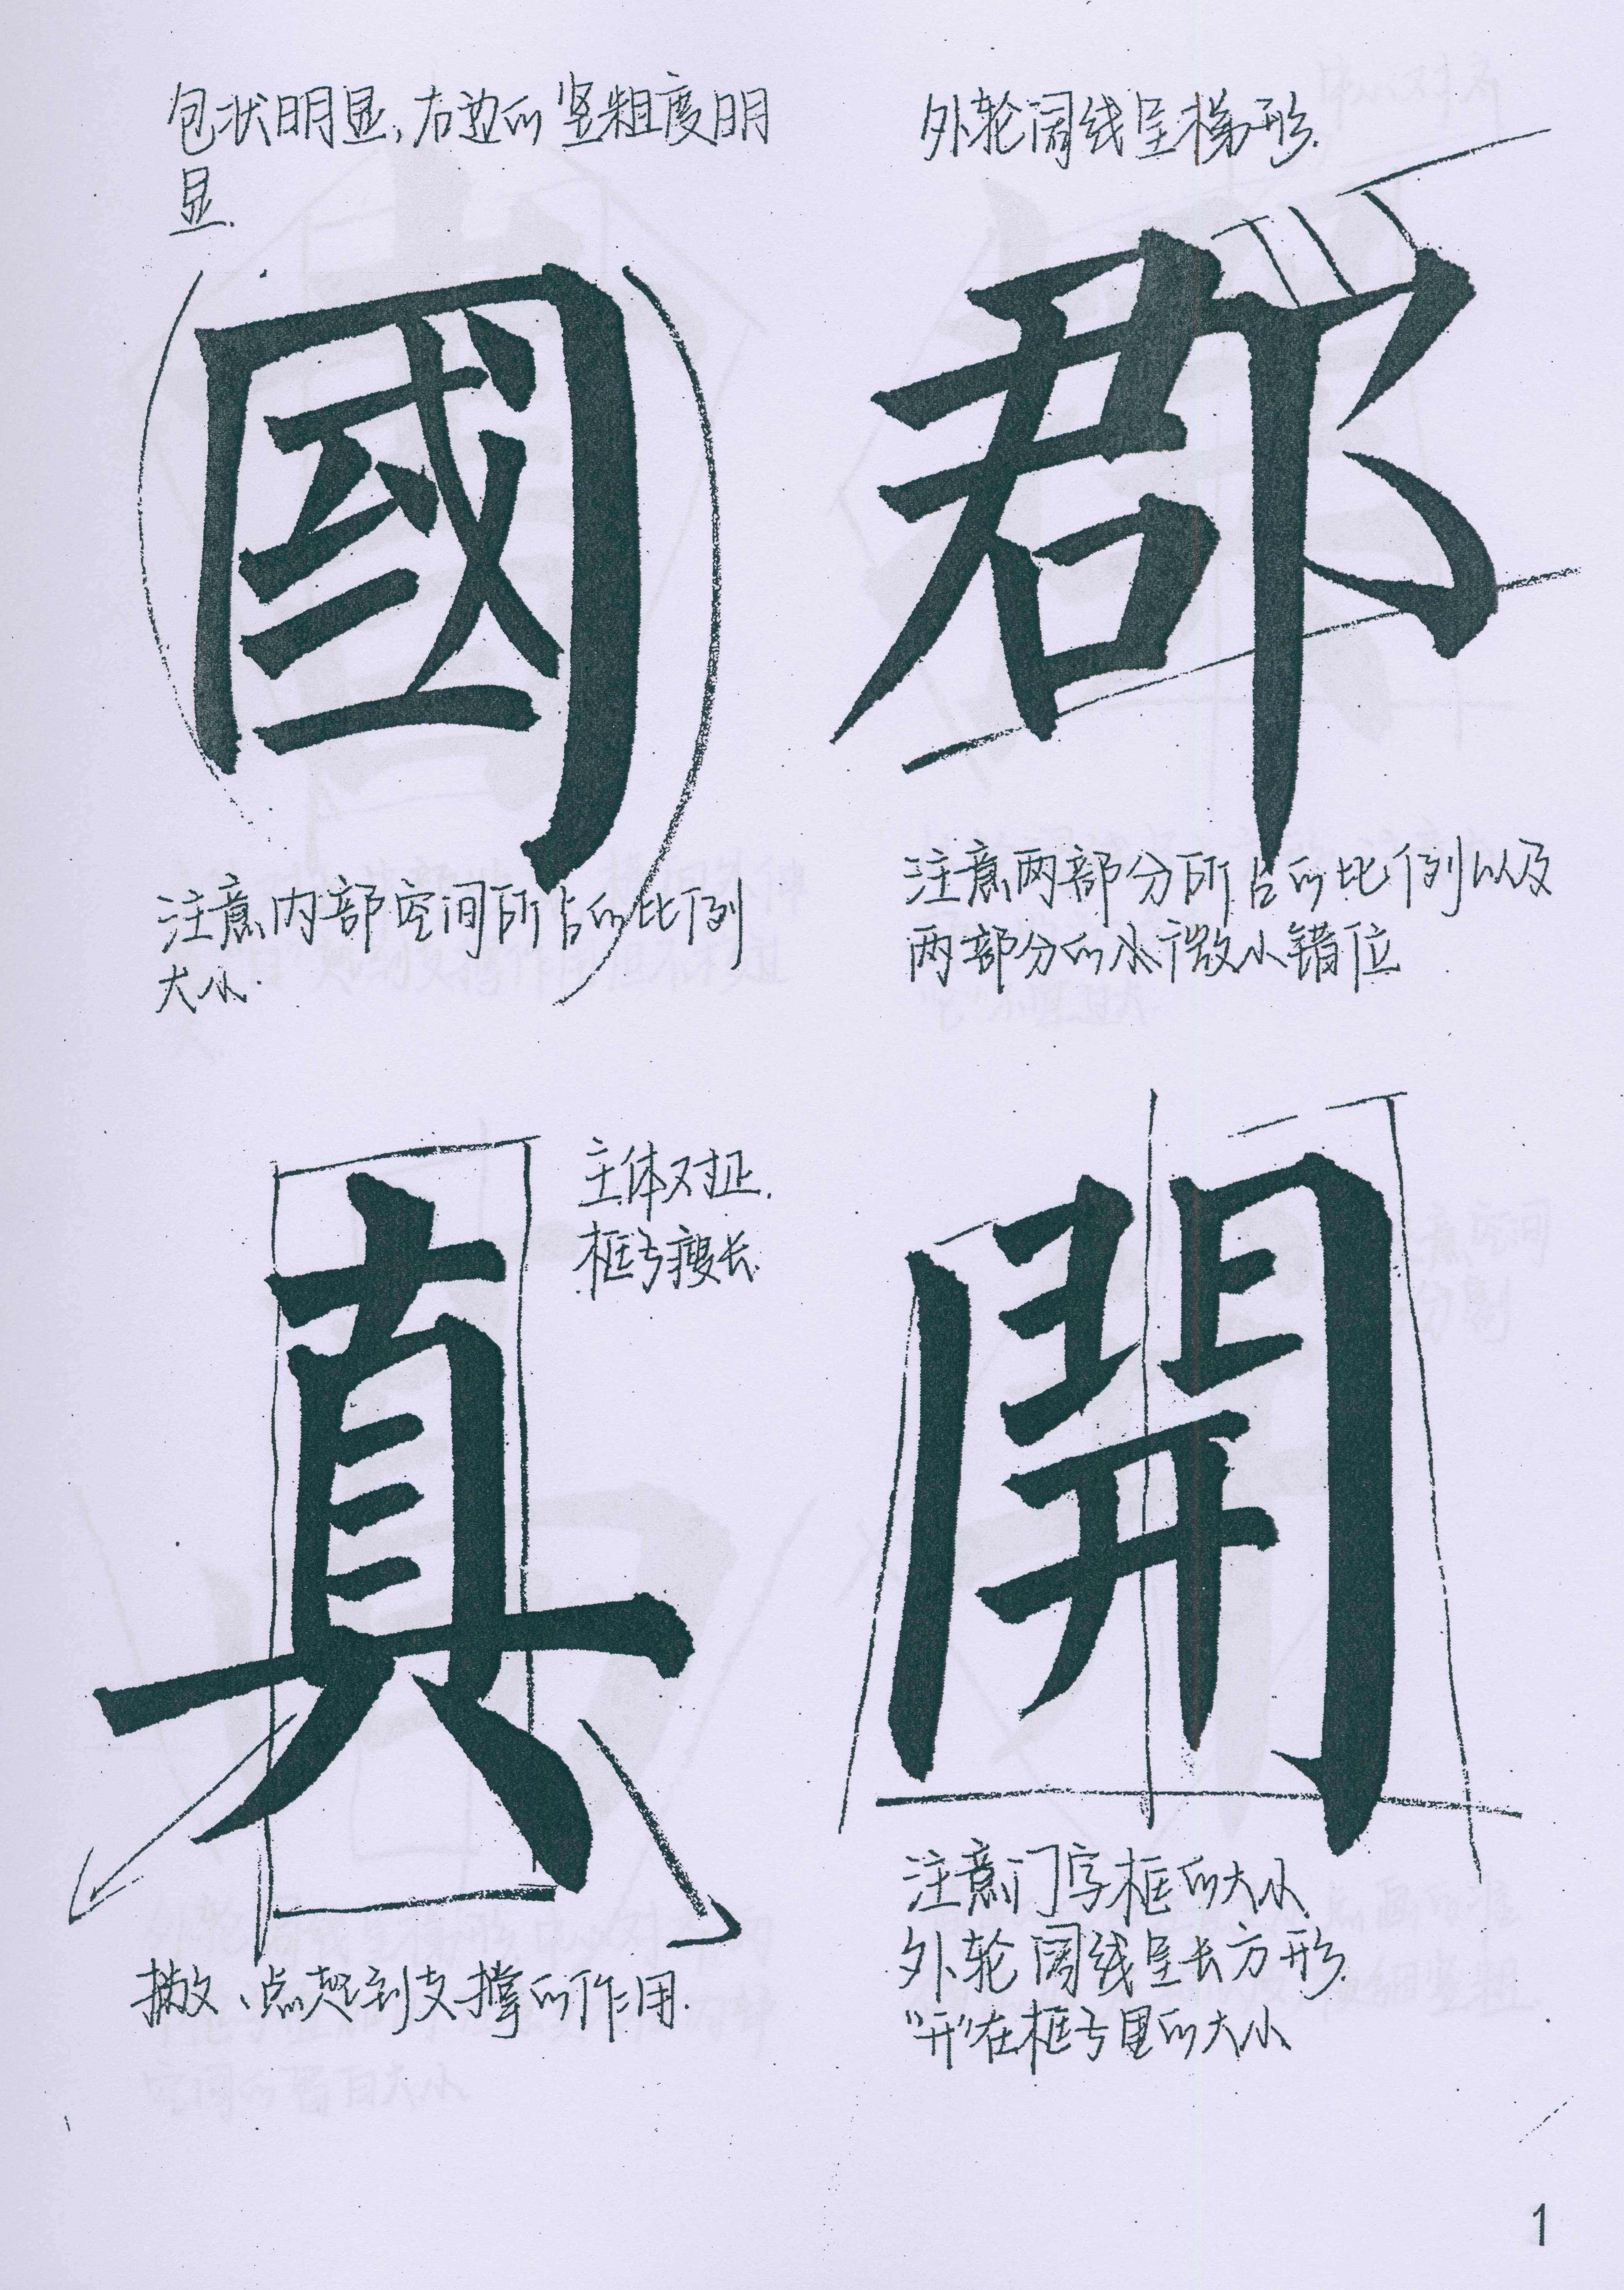 包状明显,右边的竖粗度明
显.
國
注意内部空间所占的比例
大小.
外轮阔线呈梯形.
郡
注意两部分所占的比例以及
两部分的水平微小错位
真
主体对正.
框与瘦长.
撇、点起到支撑的作用.
開
注意门字框的大小
外轮阔线呈长方形.
"开"在框与里的大小
1